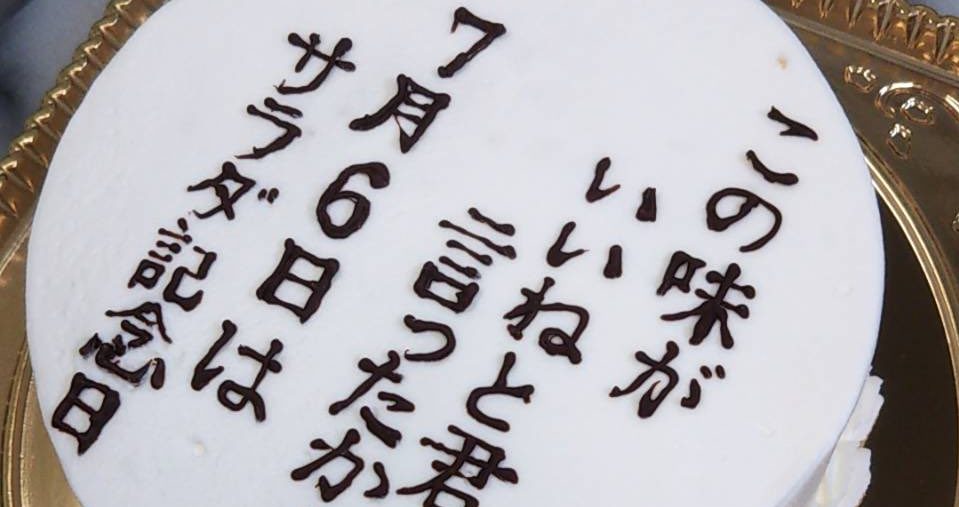 この味が
いいねと君
言ったか
7月6日は
サラダ記念日